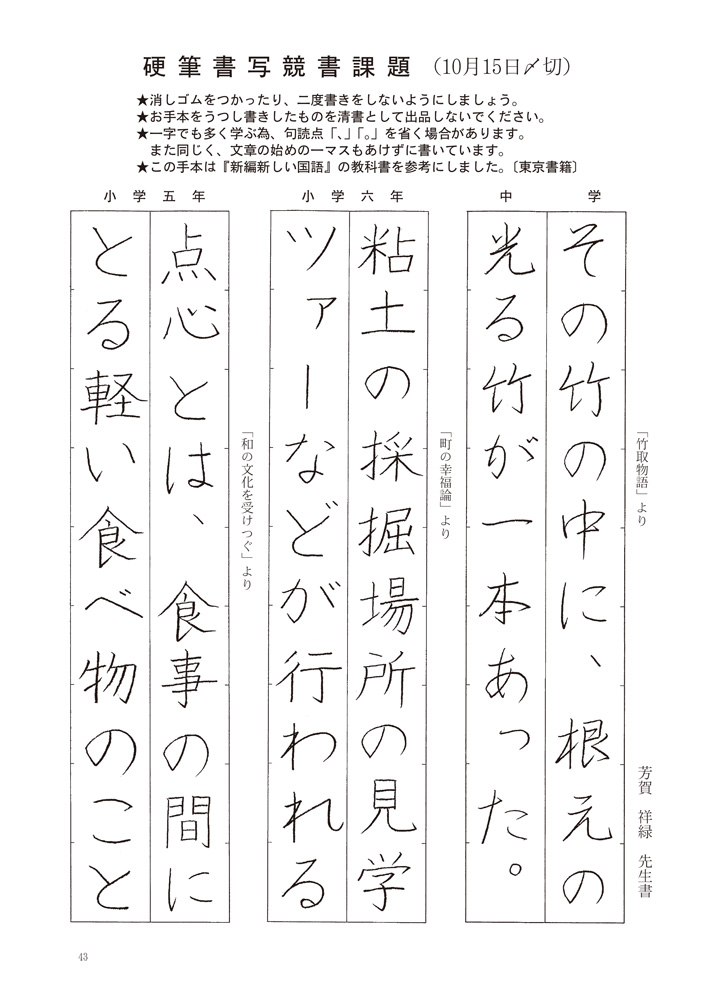 硬筆書写競書課題 (10月15日〆切)
★消しゴムをつかったり、二度書きをしないようにしましょう。
★お手本をうつし書きしたものを清書として出品しないでください。
★一字でも多く学ぶ為、句読点「、」「。」を省く場合があります。
また同じく、文章の始めの一マスもあけずに書いています。
★この手本は『新編新しい国語』の教科書を参考にしました。〔東京書籍〕
中学
「竹取物語」より
芳賀 祥緑 先生書
その竹の中に、根元の
光る竹が一本あった。
小学六年
「町の幸福論」より
粘土の採掘場所の見学
ツァーなどが行われる
小学五年
「和の文化を受けつぐ」より
点心とは、食事の間に
とる軽い食べ物のこと
43